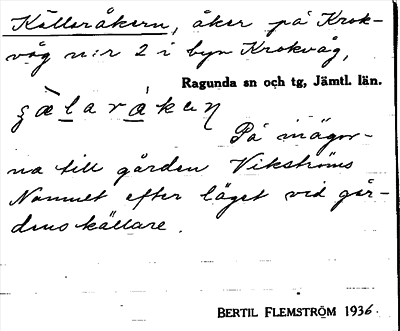 Källaråkern, åker på Krok-
våg n:r 2 i byn Krokvåg,
Ragunda sn och tg, Jämtl. län.
På mägor-
na till gården Vikströms
Namnet efter läget vid går-
dens källare.
BERTIL FLEMSTRÖM 1936.